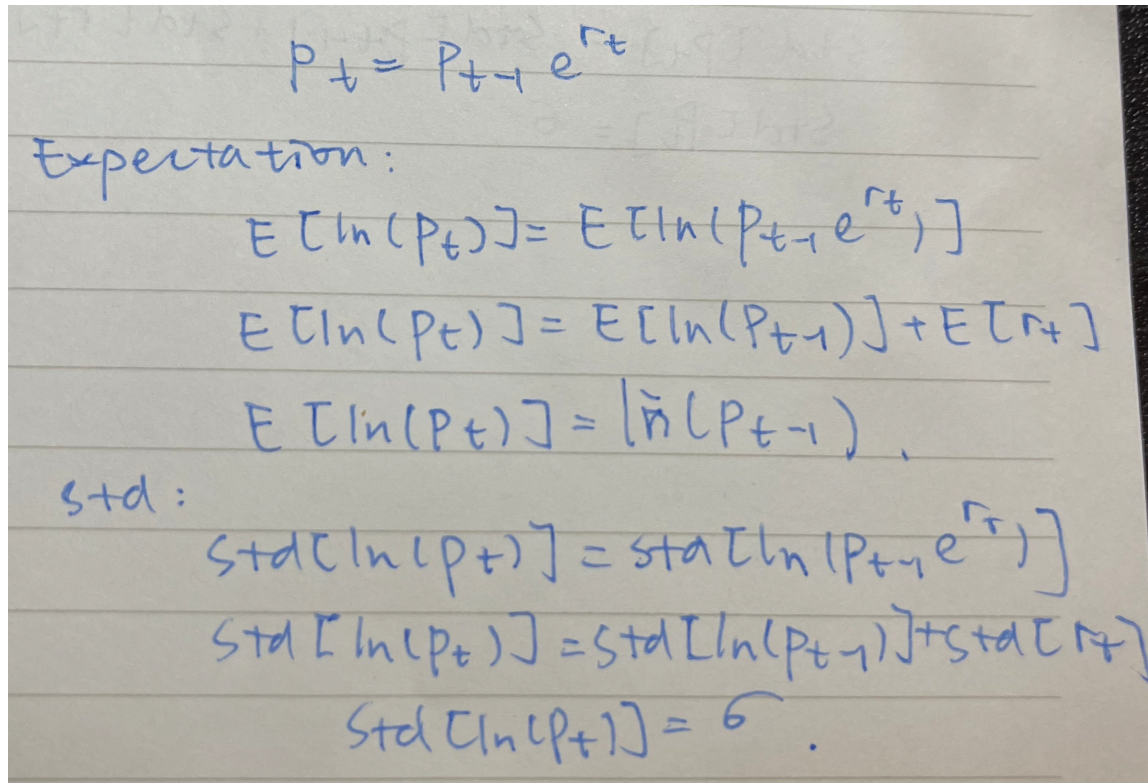 P_t = P_{t-1} e^{r_t}
Expectation:
E[ln(P_t)] = E[ln(P_{t-1} e^{r_t})]
E[ln(P_t)] = E[ln(P_{t-1})] + E[r_t]
E[ln(P_t)] = ln(P_{t-1}).
std:
std[ln(P_t)] = std[ln(P_{t-1} e^{r_t})]
std[ln(P_t)] = std[ln(P_{t-1})] + std[r_t]
std[ln(P_t)] = σ.